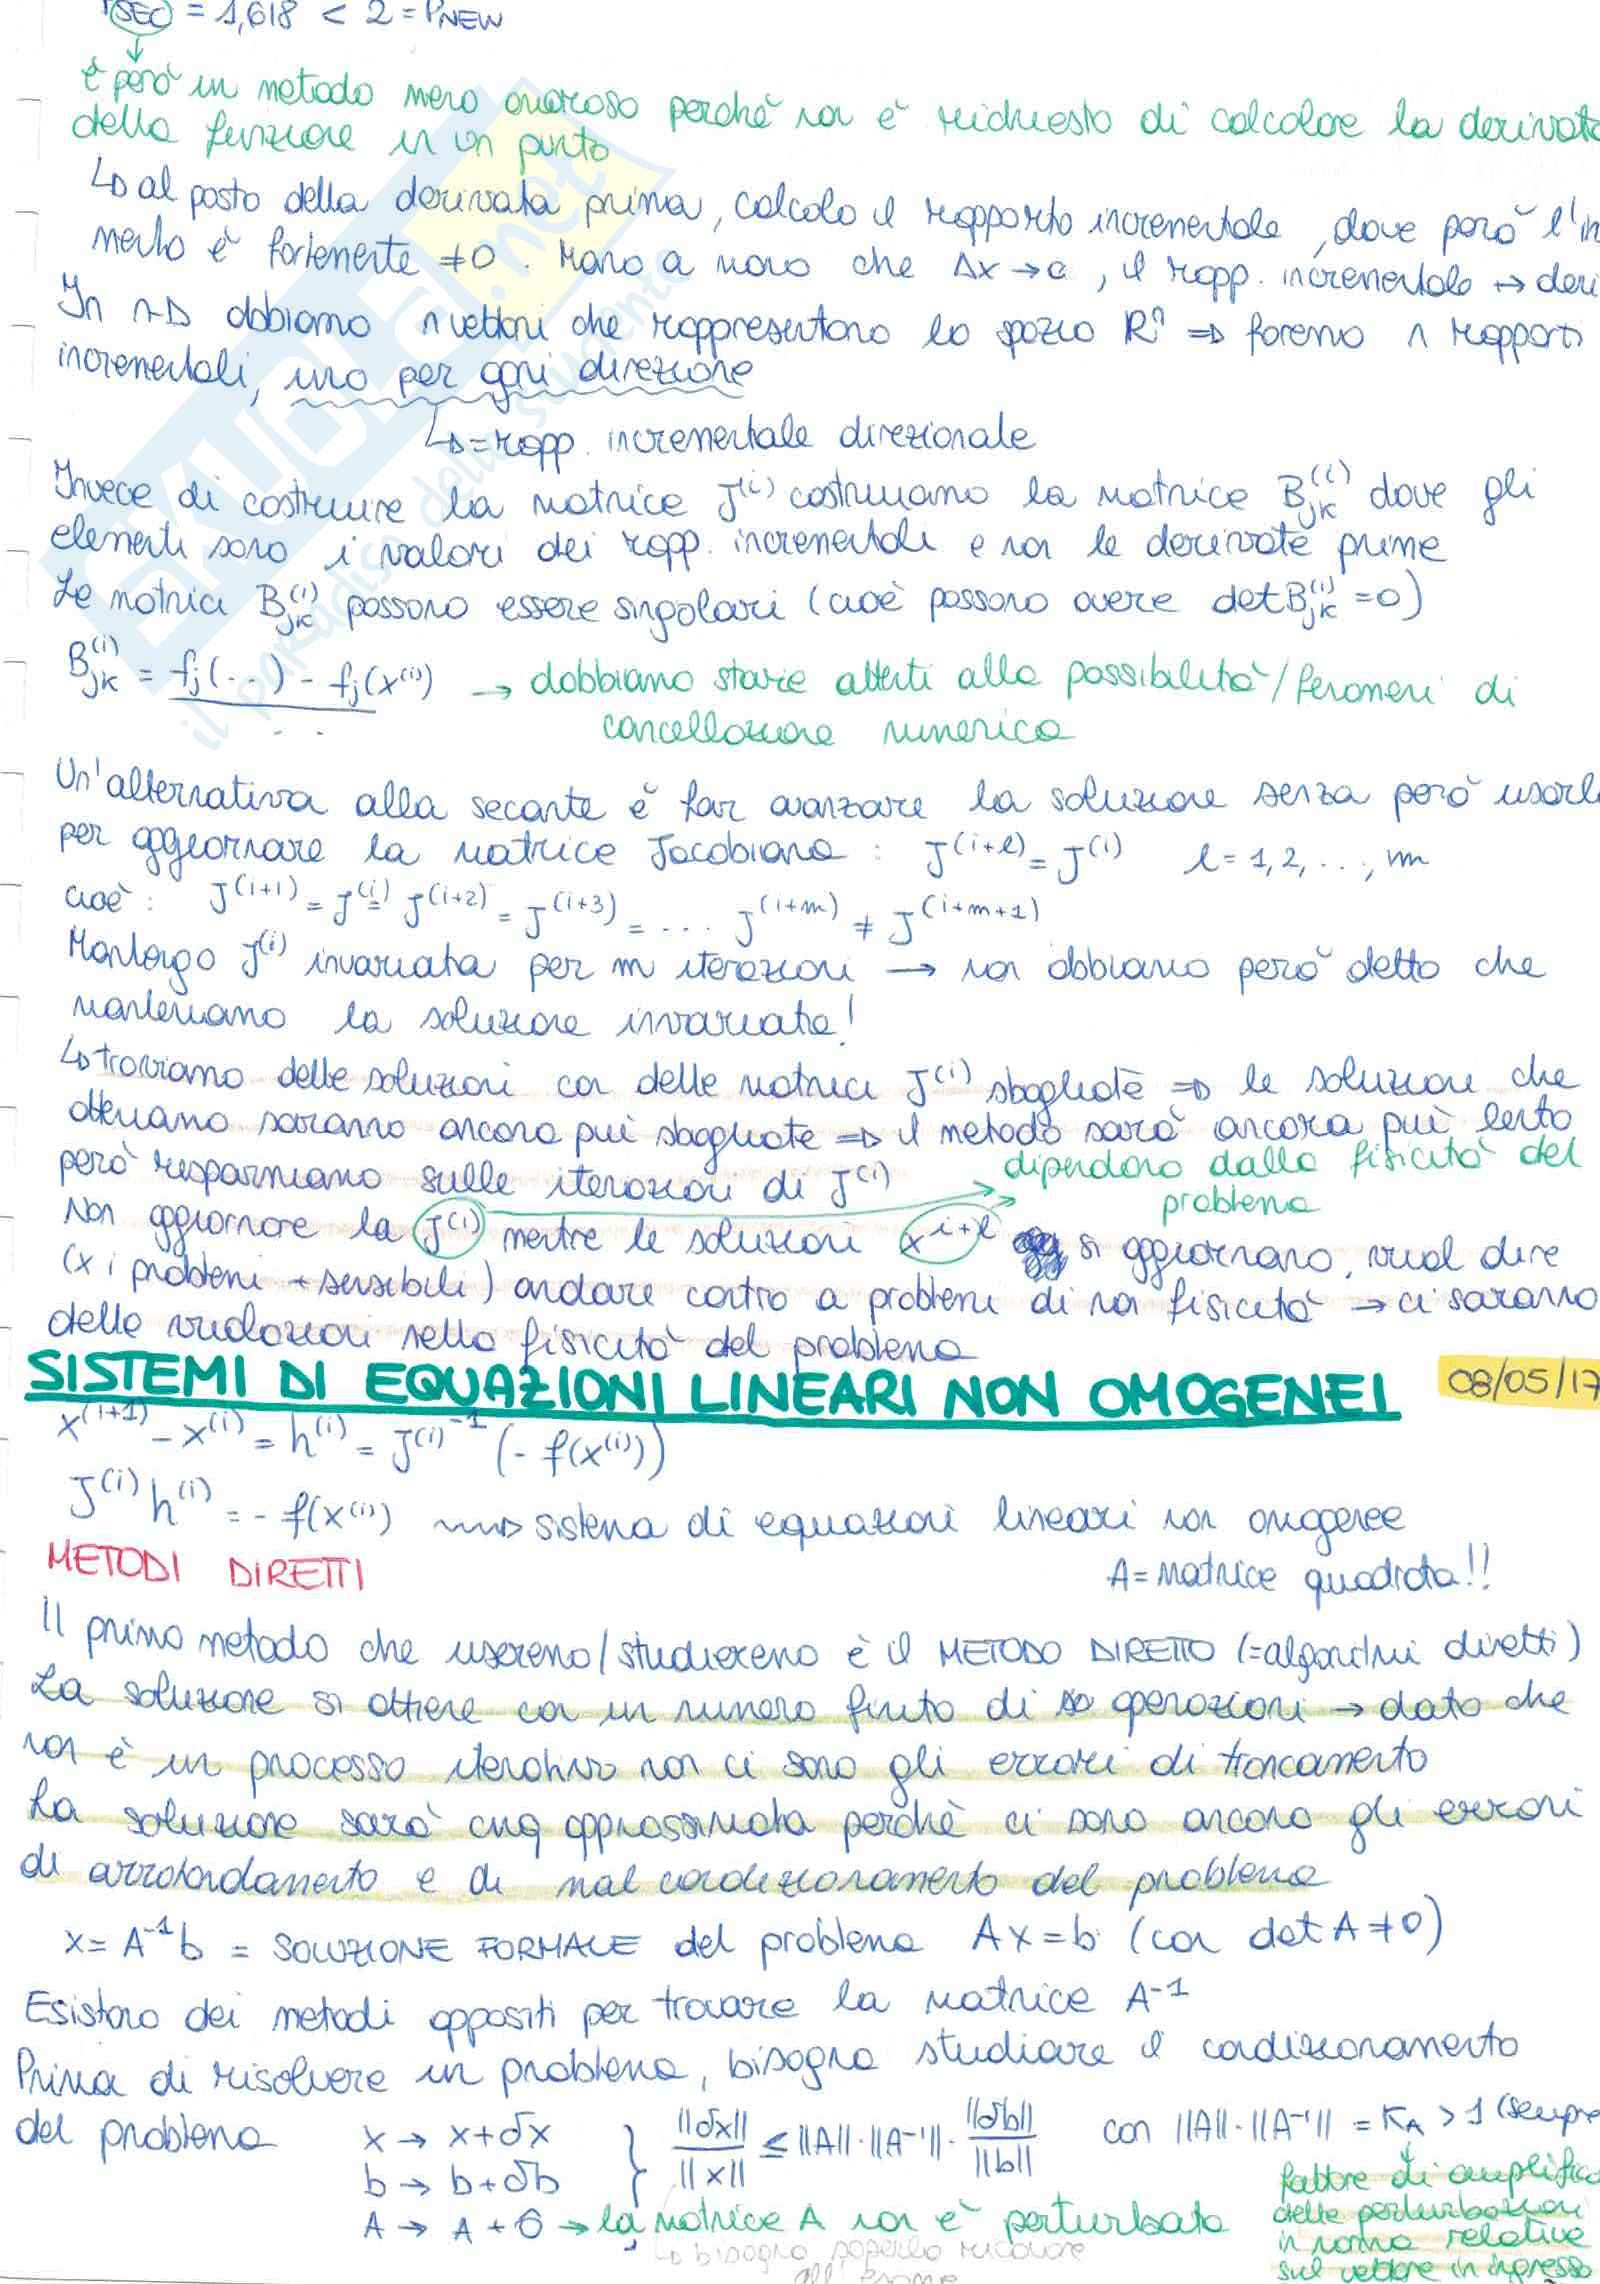 PSEC = 1,618 < 2 = PNEW
è però un metodo meno oneroso perché non è richiesto di calcolare la derivata
della funzione in un punto
↳ al posto della derivata prima, calcolo il rapporto incrementale, dove però l'in
mento è fortemente ≠0. Mano a mano che Δx→0, il rapp. incrementale → deri
In n-D abbiamo n vettori che rappresentano lo spazio Rⁿ ⇒ faremo n rapporti
incrementali, uno per ogni direzione
↳ = rapp. incrementale direzionale
Invece di costruire la matrice J⁽ⁱ⁾ costruiamo la matrice Bjk⁽ⁱ⁾ dove gli
elementi sono i valori dei rapp. incrementali e non le derivate prime
Le matrici Bjk⁽ⁱ⁾ possono essere singolari (cioè possono avere det Bjk⁽ⁱ⁾ = 0)
Bjk⁽ⁱ⁾ = fj(...) - fj(x⁽ⁱ⁾) → dobbiamo stare attenti alla possibilità/fenomeni di
...
cancellazione numerica
Un'alternativa alla secante è far avanzare la soluzione senza però usarl
per aggiornare la matrice Jacobiana: J^(i+l) = J^(i) l = 1,2, ..., m
cioè: J^(i+1) = J^(i) = J^(i+2) = J^(i+3) = ... J^(i+m) ≠ J^(i+m+1)
Mantengo J⁽ⁱ⁾ invariata per m iterazioni → non abbiamo però detto che
manteniamo la soluzione invariata!
↳ troviamo delle soluzioni con delle matrici J⁽ⁱ⁾ sbagliate ⇒ le soluzioni che
otteniamo saranno ancora più sbagliate ⇒ il metodo sarà ancora più lento
però risparmiamo sulle iterazioni di J⁽ⁱ⁾
dipendono dalla fisicità del
problema
Non aggiornare la J⁽ⁱ⁾ mentre le soluzioni x^(i+l) si aggiornano, vuol dire
(x i problemi + sensibili) andare contro a problemi di non fisicità → ci saranno
delle violazioni nella fisicità del problema
SISTEMI DI EQUAZIONI LINEARI NON OMOGENEI 08/05/17
x^(i+1) - x^(i) = h^(i) = J^(i)^-1 (- f(x^(i)))
J^(i) h^(i) = - f(x^(i)) → sistema di equazioni lineari non omogenee
METODI DIRETTI
A = matrice quadrata!!
Il primo metodo che useremo/studieremo è il METODO DIRETTO (=algoritmi diretti)
La soluzione si ottiene con un numero finito di operazioni → dato che
non è un processo iterativo non ci sono gli errori di troncamento
La soluzione sarà cmq approssimata perché ci sono ancora gli errori
di arrotondamento e di mal condizionamento del problema
x = A⁻¹b = SOLUZIONE FORMALE del problema Ax = b (con det A ≠ 0)
Esistono dei metodi appositi per trovare la matrice A⁻¹
Prima di risolvere un problema, bisogna studiare il condizionamento
del problema
x → x + δx
b → b + δb
A → A + 0 → la matrice A non è perturbata
} ||δx||/||x|| ≤ ||A|| · ||A⁻¹|| · ||δb||/||b|| con ||A|| · ||A⁻¹|| = KA > 1 (sempre
fattore di amplifica
delle perturbazioni
in norma relativa
sul vettore in ingresso
↳ bisogna saperlo ricavare
all'esame
SKUOLA.net
il paradiso dello studente